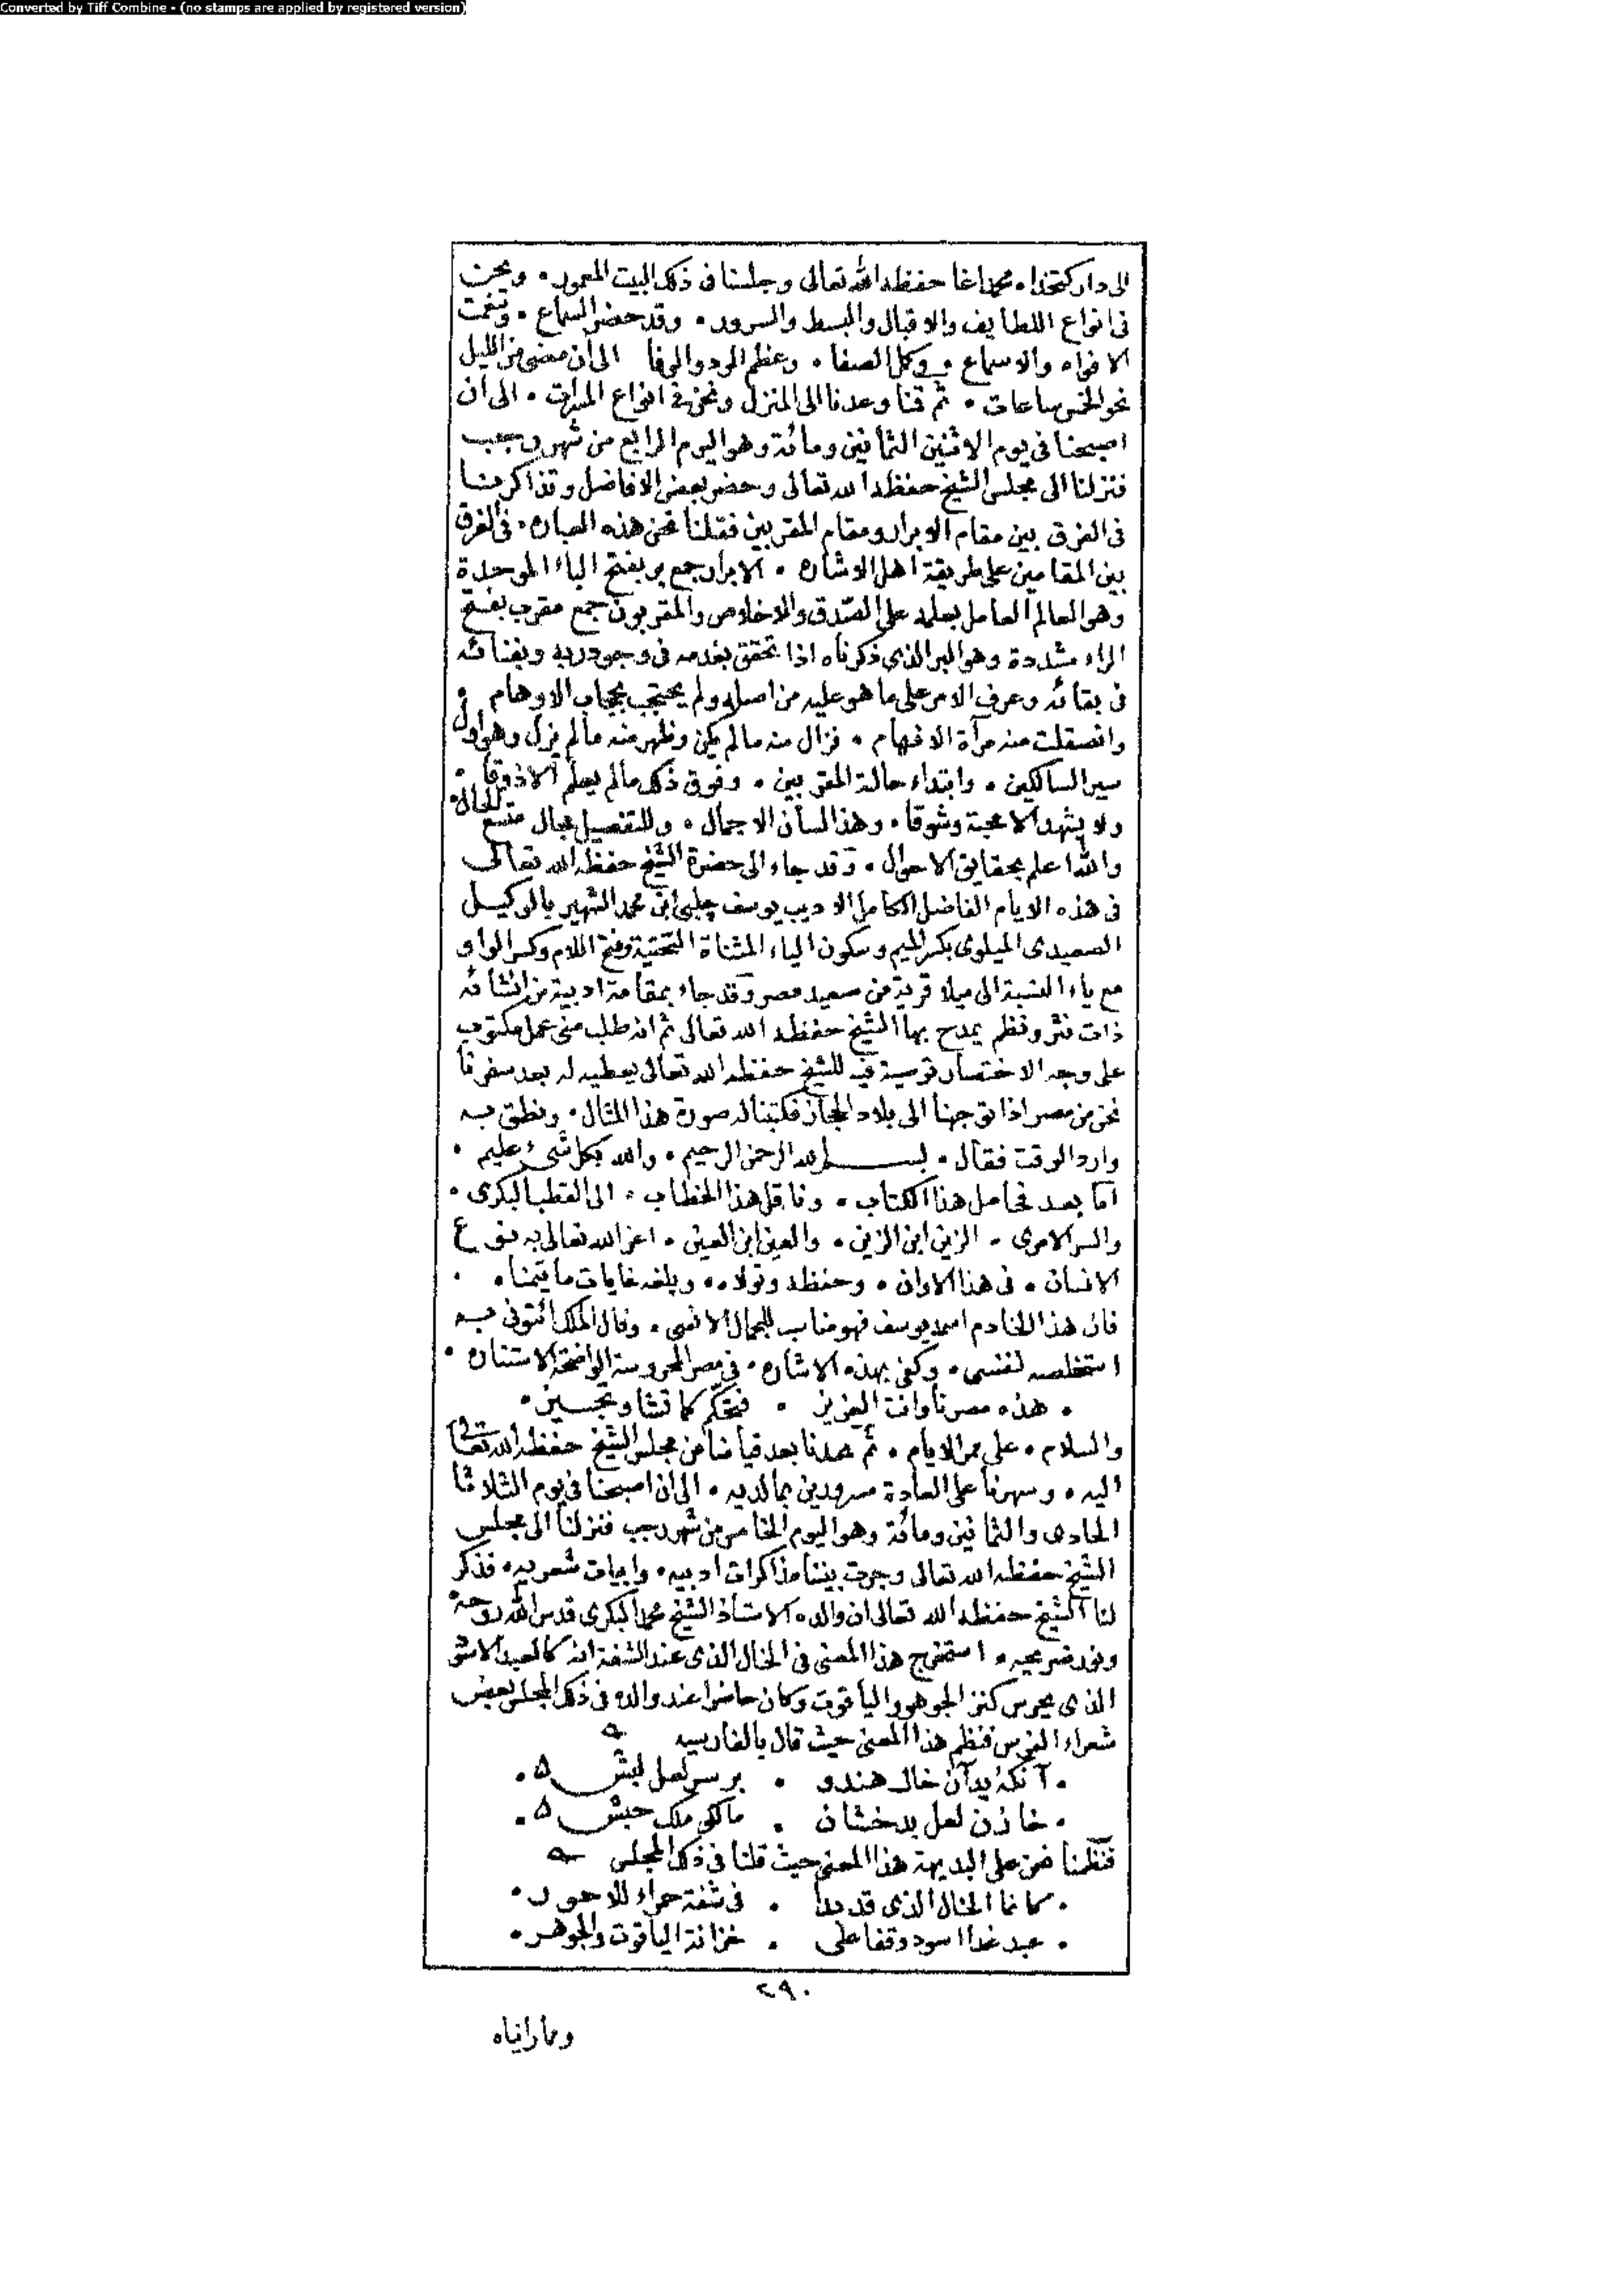 Converted by Tiff Combine - (no stamps are applied by registered version)
الى دار كتخداه محمد اغا حفظه الله تعالى وجلسنا فى ذلك البيت المعمور • ونحن
فى انواع اللطايف والاقبال والبسط والسرور • وقد حضر السماع • وتنغمت
الافواه والاسماع • وكمل الصفا • وعظم الود والوفا الى ان مضى من الليل
نحو الخمس ساعات • ثم قمنا وعدنا الى المنزل ونحن فى انواع المبرات • الى ان
اصبحنا فى يوم الاثنين الثمانين ومائة وهو اليوم الرابع من شهر رجب
فنزلنا الى مجلس الشيخ حفظه الله تعالى وحضر بعض الافاضل وتذاكرنا
فى الفرق بين مقام الابرار ومقام المقربين فقلنا نحن هذه العباره • فى الفرق
بين المقامين على طريقة اهل الاشاره • الابرار جمع بر بفتح الباء الموحدة
وهو العالم العامل بعلمه على الصدق والاخلاص والمقربون جمع مقرب بفتح
الراء مشددة وهو البر الذى ذكرناه اذا تحقق بعدمه فى وجود ربه وبفنائه
فى بقائه وعرف الامر على ما هو عليه من اصله ولم يحتجب بحجاب الاوهام •
وانصقلت منه مرآة الافهام • فزال منه مالم يكن وظهر منه مالم يزل وهو اول
سير السالكين • وابتداء حالة المقربين • وفوق ذلك مالم يعلم الا ذوقا •
ولا يشهد الا محبة وشوقا • وهذا لسان الاجمال • وللتفصيل مجال متسع للحال•
والله اعلم بحقايق الاحوال • وقد جاء الى حضرة الشيخ حفظه الله تعالى
فى هذه الايام الفاضل الكامل الاديب يوسف چلبى ابن محمد الشهير بالوكيل
الصعيدى الميلوى بكسر الميم وسكون الياء المثناة التحتية وفتح اللام وكسر الواو
مع ياء النسبة الى ميلا قرية من صعيد مصر وقد جاء بمقامة ادبية من انشائه
ذات نثر ونظم يمدح بها الشيخ حفظه الله تعالى ثم انه طلب منى عمل مكتوب
على وجه الاختصار توصية فيه للشيخ حفظه الله تعالى يعطيه له بعد سفرنا
نحن من مصر اذا توجهنا الى بلاد الحجاز فكتبنا له صورة هذا المثال • ونطق به
وارد الوقت فقال • بسم الله الرحمن الرحيم • والله بكل شىء عليم •
اما بعد فحامل هذا الكتاب • وناقل هذا الخطاب • الى القطب البكرى •
والسر الامرى • الزين ابن الزين • والعين ابن العين • اعز الله تعالى به نوع
الانسان • فى هذا الاوان • وحفظه وتولاه • وبلغه غايات ما يتمناه •
فان هذا الخادم اسمه يوسف فهو مناسب للجمال الانسى • وقال الملك ائتونى به
استخلصه لنفسى • وكفى بهذه الاشاره • فى مصر المحروسة الواضحة الاستناره •
• هذه مصرنا وانت العزيز • فتحكّم كما تشا وتحسين •
والسلام • على ممر الايام • ثم عمدنا بعد قيامنا من مجلس الشيخ حفظه الله تعالى
اليه • وسهرنا على العادة مسرورين بما لديه • الى ان اصبحنا فى يوم الثلاثا
الحادى والثمانين ومائة وهو اليوم الخامس من شهر رجب فنزلنا الى مجلس
الشيخ حفظه الله تعالى وجرت بيننا مذاكرات ادبيه • وابيات شعريه • فذكر
لنا الشيخ حفظه الله تعالى ان والده الاستاذ الشيخ محمد البكرى قدس الله روحه
ونور ضريحه • استخرج هذا المعنى فى الخال الذى عند الشفة انه كالعبد الاسو
الذى يحرس كنز الجوهر والياقوت وكان حاضرا عند والده فى ذلك المجلس بعض
شعراء الفرس فنظم هذا المعنى حيث قال بالفارسيه
• آنكه بدآن خال هندو • بر سر لعل لبش •
• خازن لعل بدخشان • مالكى ملك حبش •
فنظمنا نحن على البديهة هذا المعنى حيث قلنا فى ذلك المجلس
• كانما الخال الذى قد بدا • فى شفة حمراء للاحور •
• عبد غدا اسود وقفا على • خزانة الياقوت والجوهر •
٢٩٠
ومما رايناه